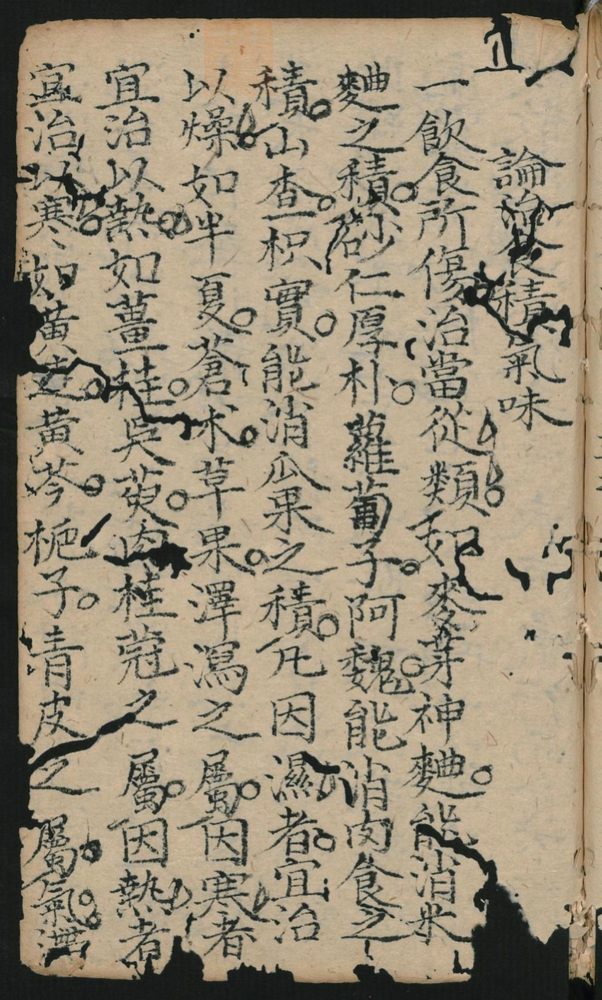 論治食積氣味
一飲食所傷治當從類如麥芽神麯能消米
麯之積砂仁厚朴蘿蔔子阿魏能消肉食之
積山查枳實能消瓜果之積凡因濕者宜治
以燥如半夏蒼术草果澤瀉之屬因寒者
宜治以熱如薑桂吳萸肉桂蔻之屬因熱者
宜治以寒如黃連黃芩梔子青皮之屬氣滯